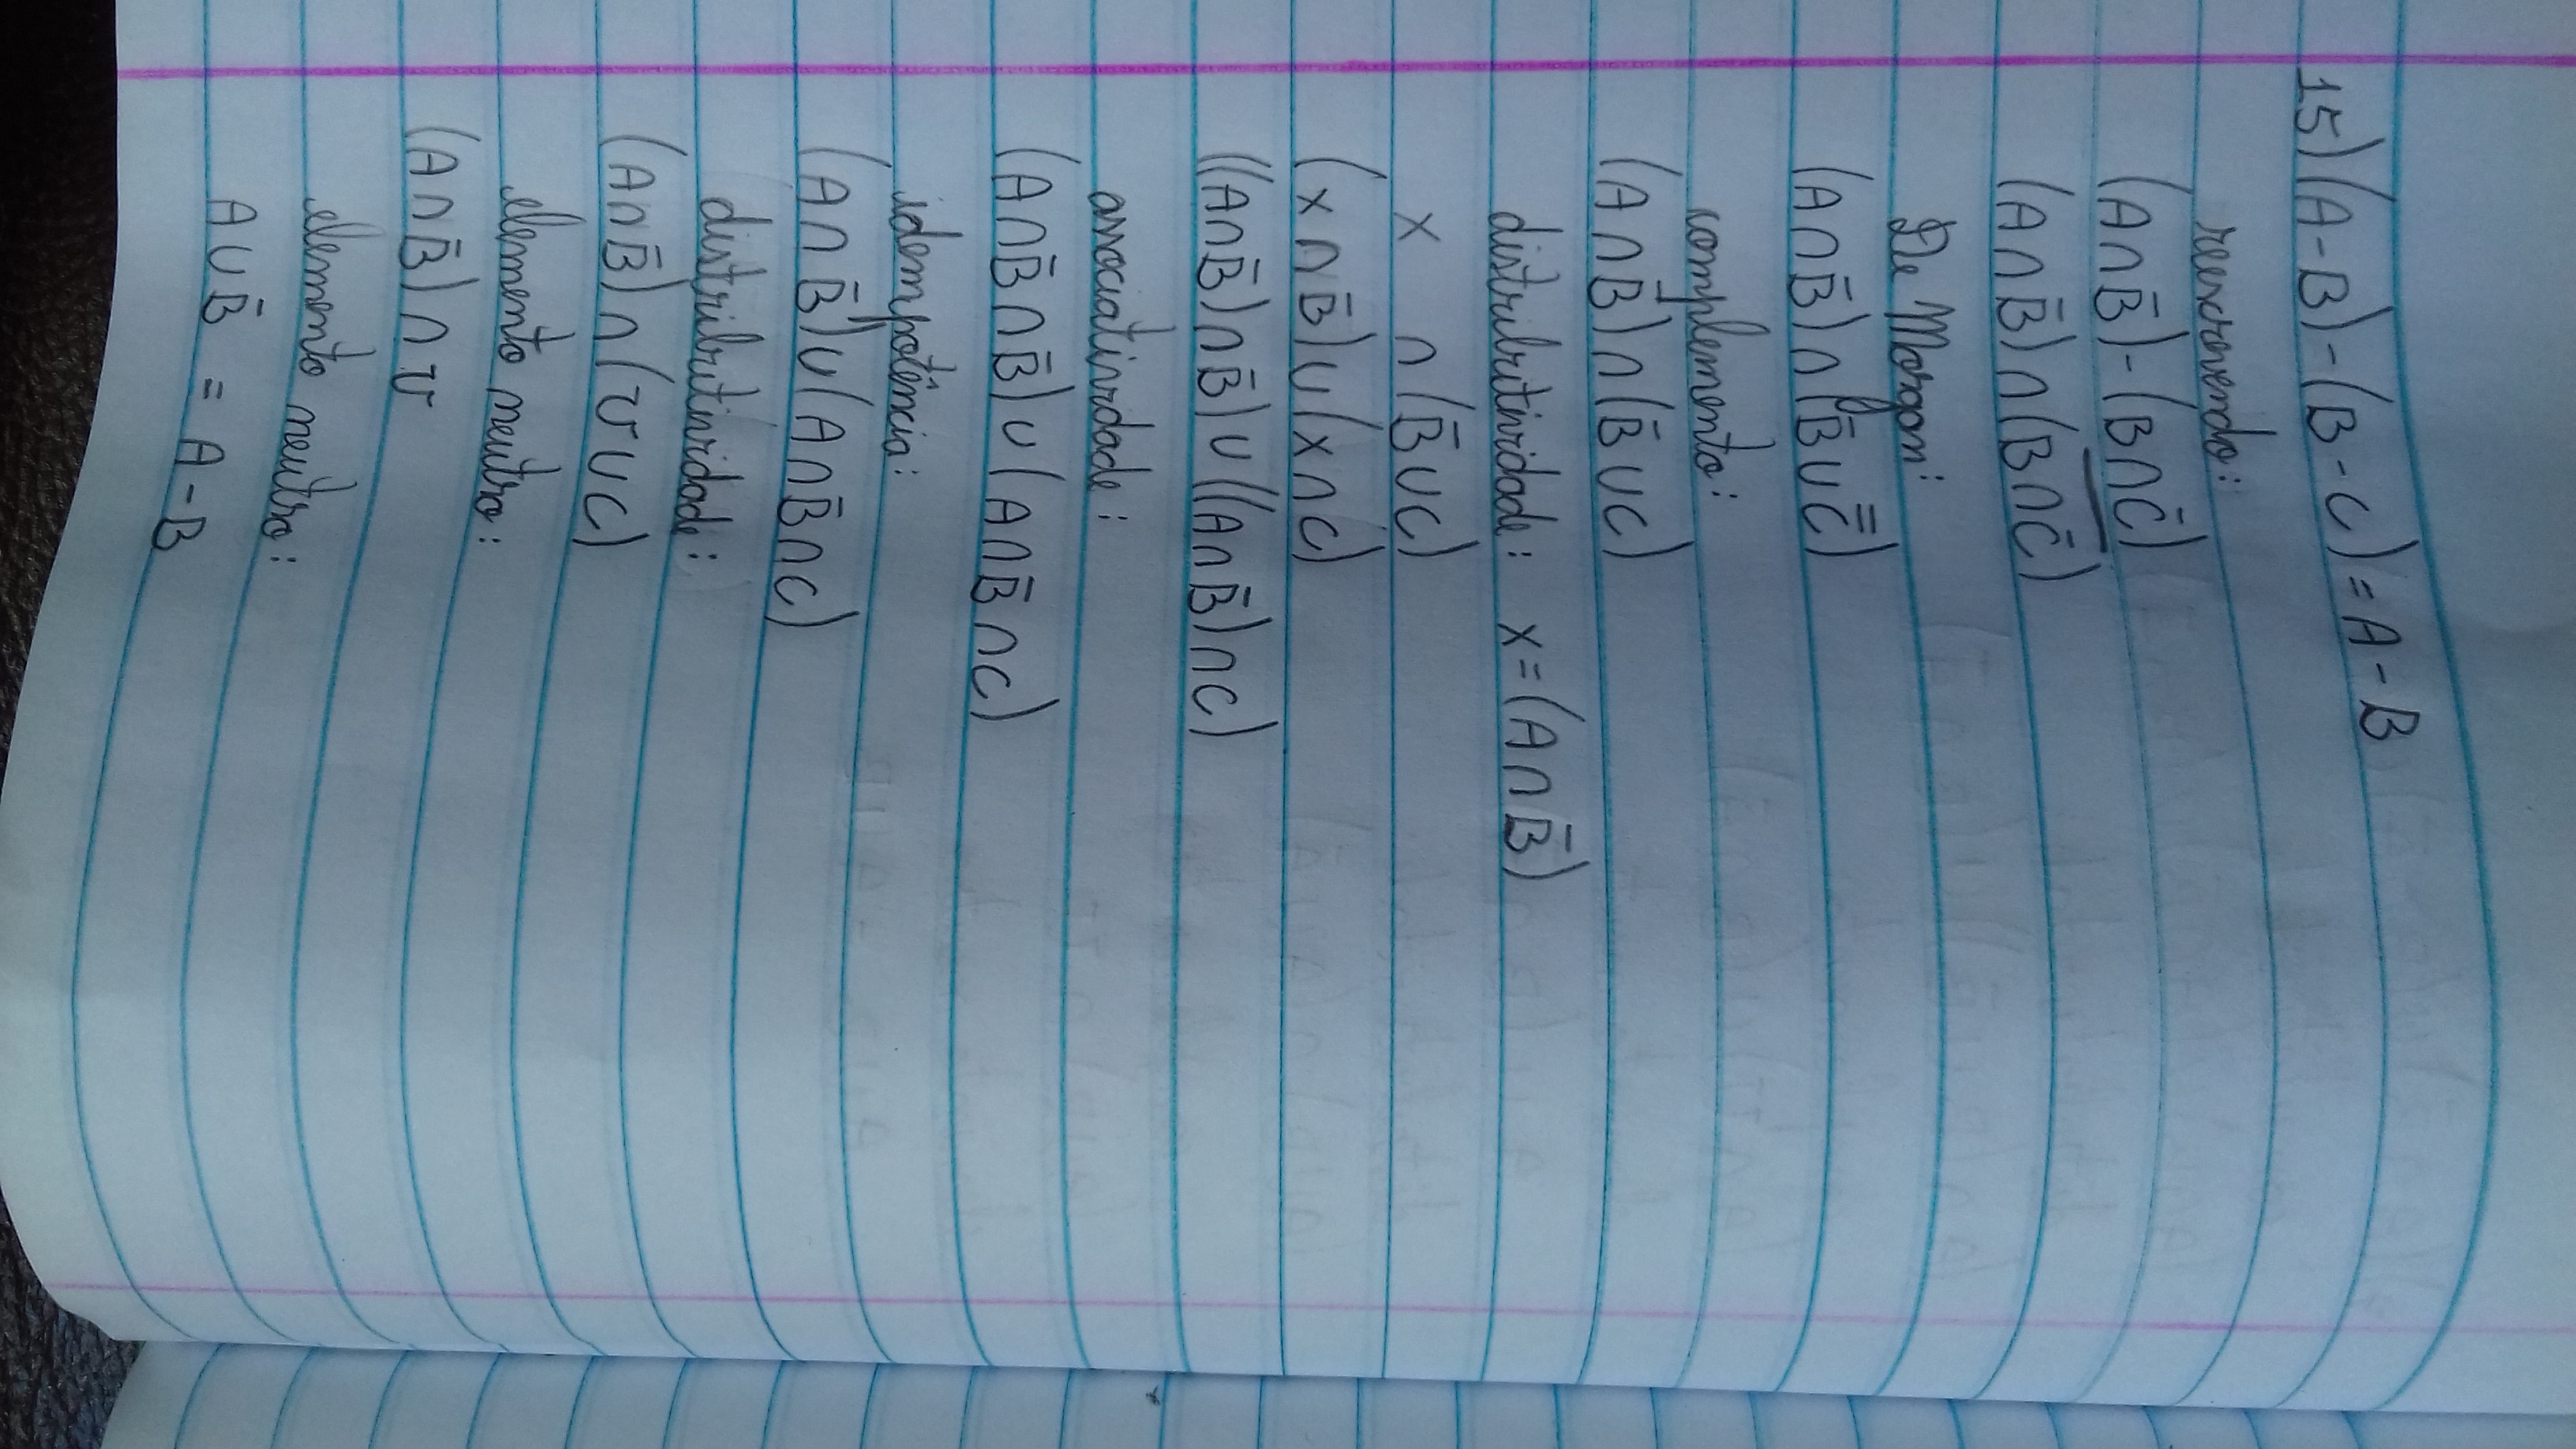 15) (A-B)-(B-C)=A-B
reescrevendo:
(A∩B̅)-(B∩C̅)
(A∩B̅)∩(B̅∩̅C̅̅)
De Morgan:
(A∩B̅)∩(B̅∪C̿)
complemento:
(A∩B̅)∩(B̅∪C)
distributividade: x=(A∩B̅)
x ∩(B̅∪C)
(x∩B̅)∪(x∩C)
((A∩B̅)∩B̅)∪((A∩B̅)∩C)
associatividade:
(A∩B̅∩B̅)∪(A∩B̅∩C)
idempotência:
(A∩B̅)∪(A∩B̅∩C)
distributividade:
(A∩B̅)∩(U∪C)
elemento neutro:
(A∩B̅)∩U
elemento neutro:
A∪B̅ = A-B